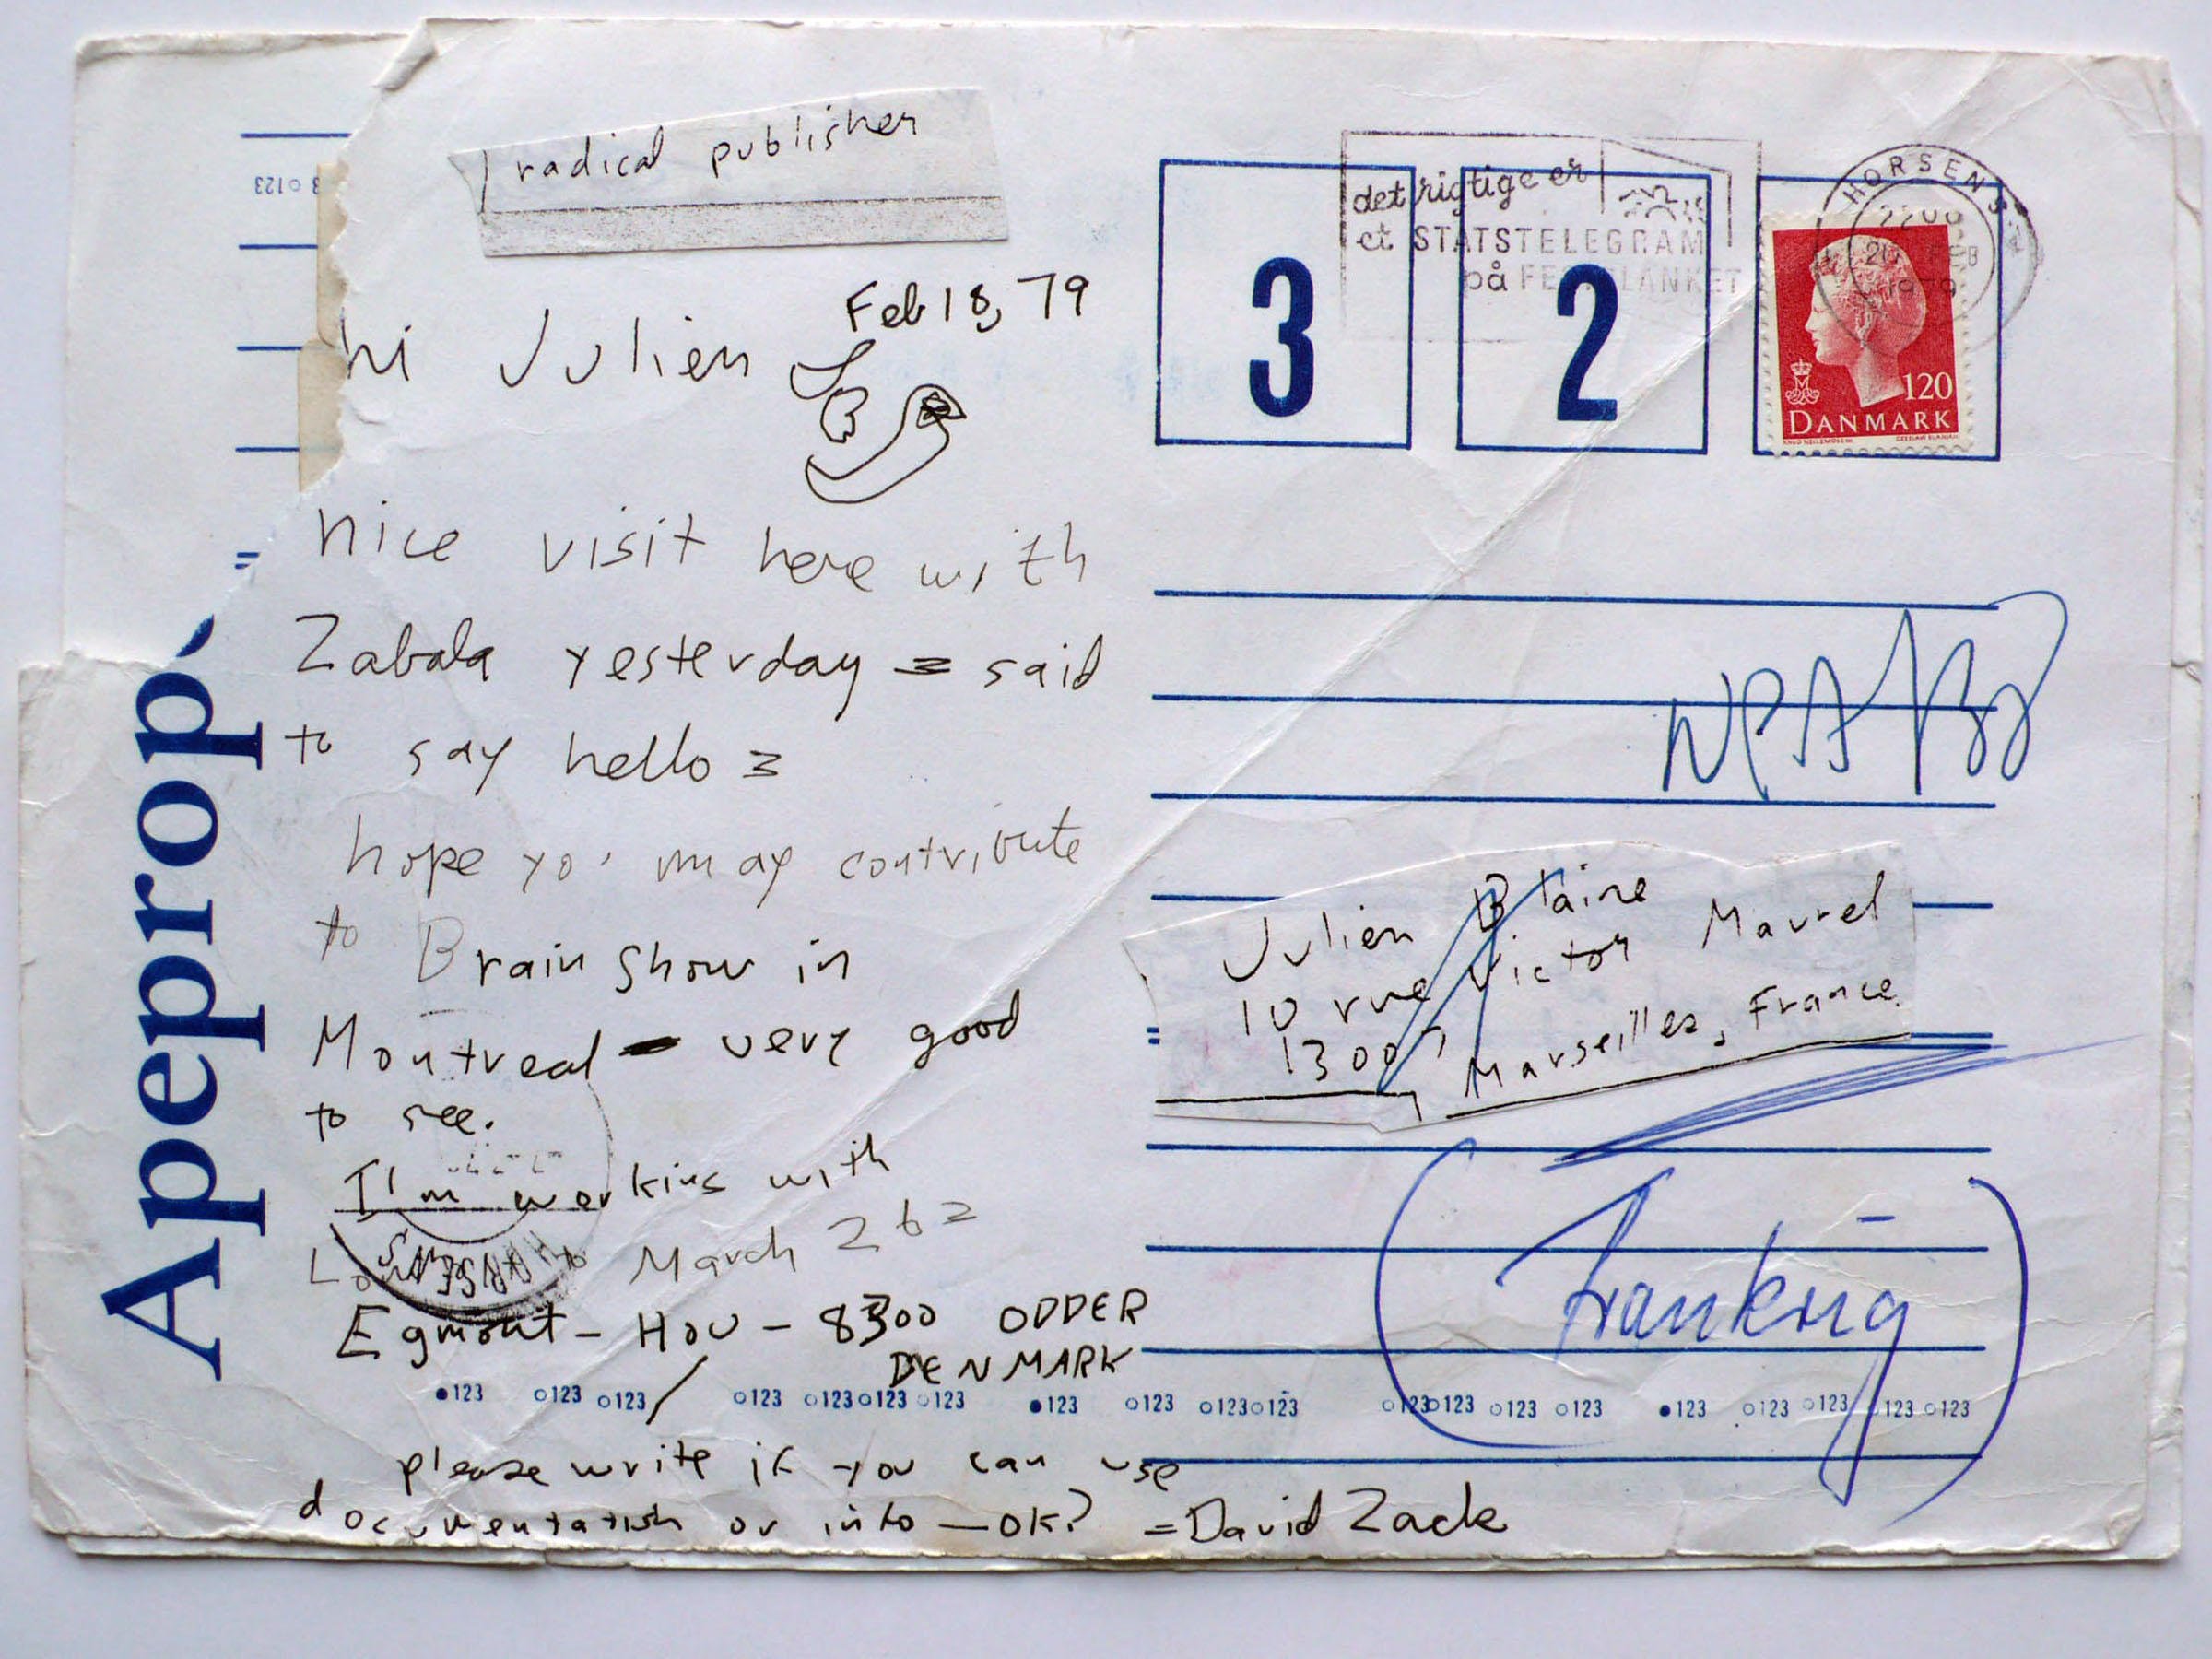 radical publisher
Feb 18, 79
hi Julien
nice visit here with
Zabala yesterday = said
to say hello =
hope you may contribute
to Brain Show in
Montreal - very good
to see.
I'm working with
to March 26 =
Egmont - Hou - 8300 ODDER
DENMARK
please write if you can use
documentation or info - OK? = David Zack
det rigtige er
et STATSTELEGRAM
på
HORSENS
FEB
1979
3
2
120
DANMARK
NPA
Julien Blaine
10 rue Victor Maurel
13007 Marseilles, France
HORSENS
123 123 123 123 123 123 123 123 123 123 123 123 123 123 123 123 123 123 123
123